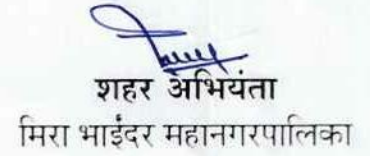 शहर अभियंता
मिरा भाईंदर महानगरपालिका